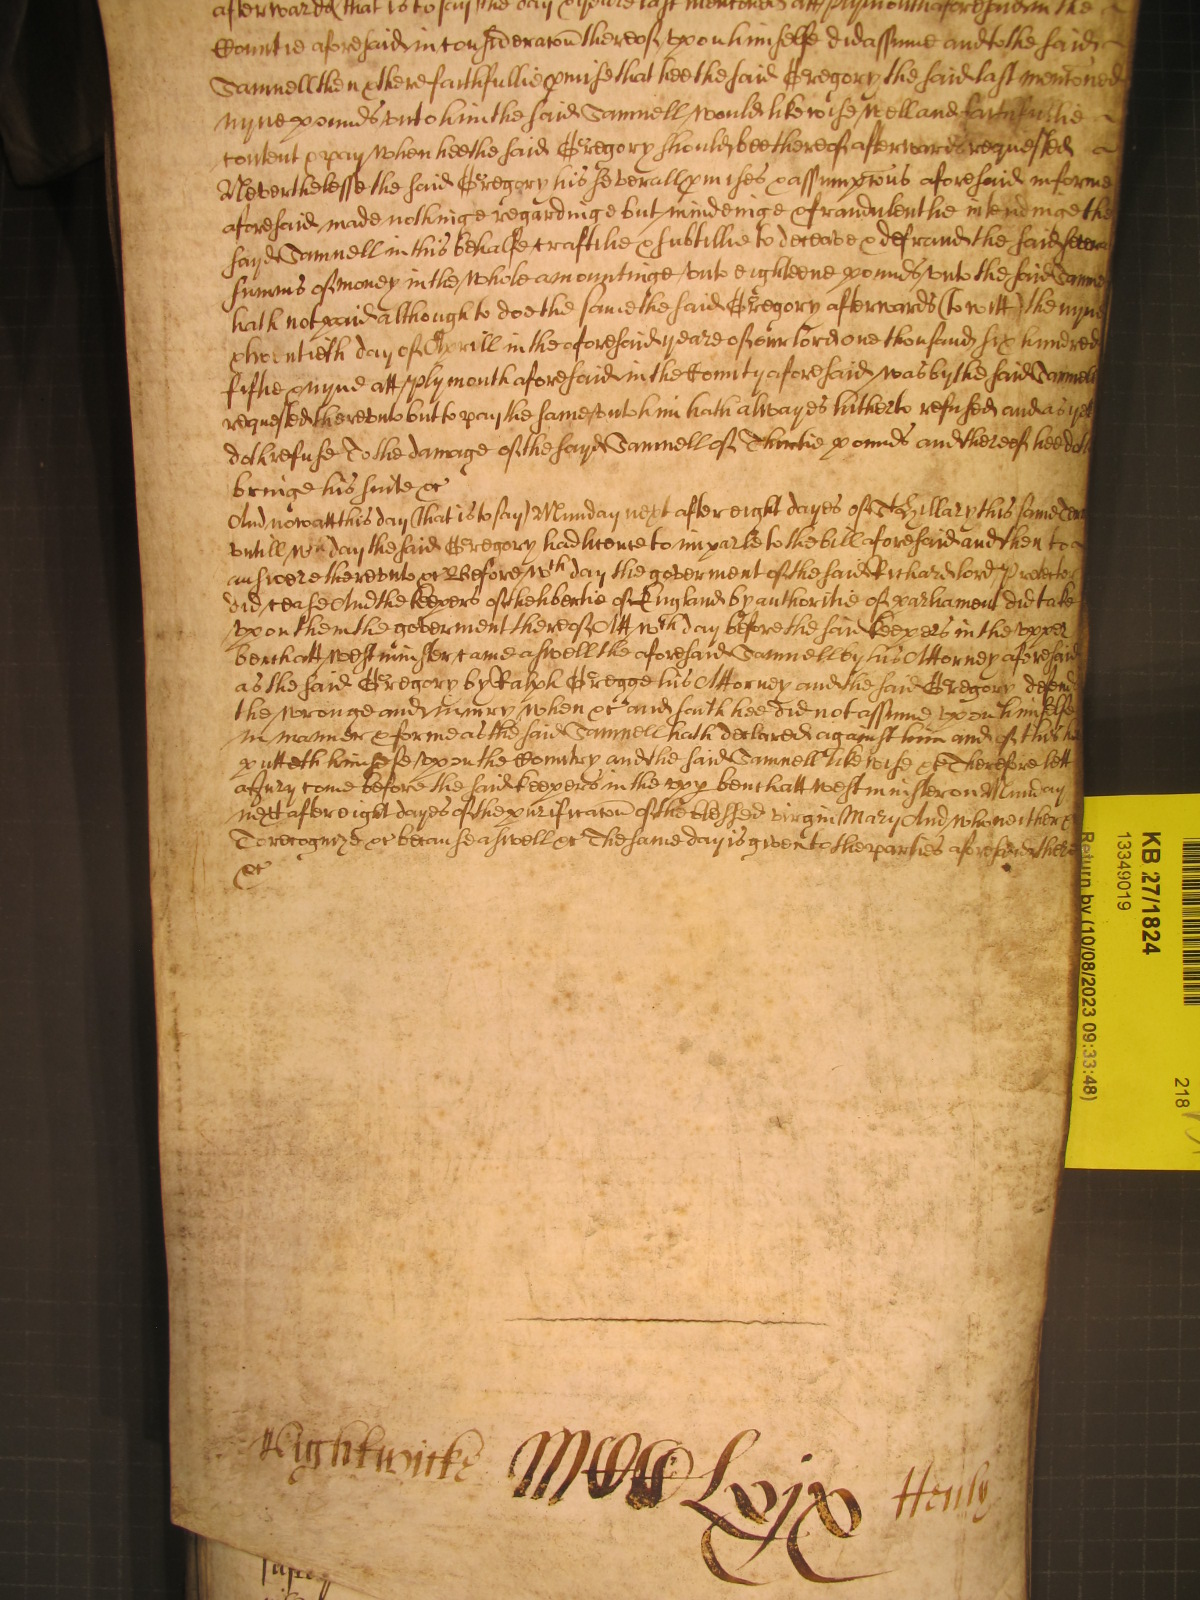 afterwards that is to say the day & yeare last mentioned att Plymouth aforesaid in the
Countie aforesaid in consideracon thereof vpon himselfe did assume and to the said
Samuell then & there faithfullie pmise that hee the said Gregory the said last mencioned
nyne pounds vnto him the said Samuell would likewise well and faithfullie
content & pay when hee the said Gregory should bee thereof afterwards requested
Neverthelesse the said Gregory his severall pmises & assumpcons aforesaid in forme
aforesaid made nothinge regardinge but mindeinge & fraudulentlie intendinge the
sayd Samuell in this behalfe craftilie & subtillie to deceave & defraud the said severall
summs of money in the whole amountinge vnto eighteene pounds vnto the said Samuell
hath not paid although to doe the same the said Gregory afterwards (to witt) the nyne
& twentieth day of Aprill in the aforesaid yeare of our lord one thousand six hundred
fiftie & nyne att Plymouth aforesaid in the County aforesaid was by the said Samuell
requested therevnto but to pay the same vnto him hath alwayes hitherto refused and as yet
doth refuse To the damage of the sayd Samuell of Thirtie pounds and thereof hee doth
bringe his suite &c
And now att this day (that is to say) Munday next after eight dayes of St Hillary this same Terme
vntill wch day the said Gregory had licence to imparle to the bill aforesaid and then to
answere therevnto &c Before wch day the goverment of the said Richard lord Protector
did cease And the keepers of the libertie of England by authoritie of parliament did take
vpon them the goverment thereof Att wch day before the said keepers in the vpper
bench att westminster came aswell the aforesaid Samuell by his Attorney aforesaid
as the said Gregory by Ralph Gregge his Attorney and the said Gregory defends
the wronge and iniury when &c and saith hee did not assume vpon himselfe
in manner & forme as the said Samuell hath declared against him and of this hee
putteth himselfe vpon the Country and the said Samuell likewise &c Therefore lett
a Jury come before the said keepers in the vpp bench att westminster on Munday
next after eight dayes of the purificacon of the blessed virgin Mary And who neither &c
To recognize &c because aswell &c The same day is given to the parties aforesaid there
&c
Nightwicke Lxix Henly
KB 27/1824
13349019
Return by (10/08/2023 09:33:48)
218